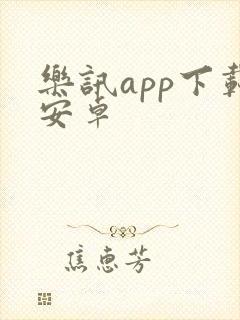 樂訊app下載
安卓
焦惠芳